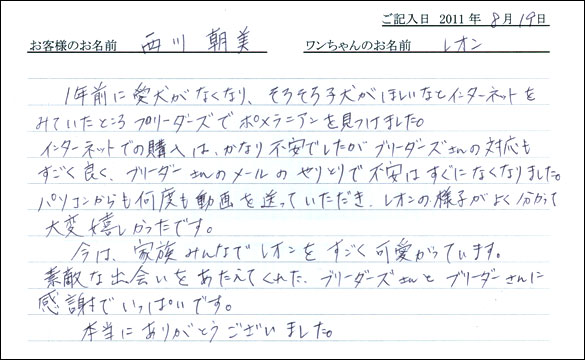 ご記入日 2011年 8月19日
お客様のお名前 西川 朝美 ワンちゃんのお名前 レオン
1年前に愛犬がなくなり、そろそろ子犬がほしいなとインターネットを
みていたところブリーダーズでポメラニアンを見つけました。
インターネットでの購入は、かなり不安でしたがブリーダーズさんの対応も
すごく良く、ブリーダーさんのメールのやりとりで不安はすぐになくなりました。
パソコンからも何度も動画を送っていただき、レオンの様子がよく分かって
大変嬉しかったです。
今は、家族みんなでレオンをすごく可愛がっています。
素敵な出会いをあたえてくれた、ブリーダーズさんとブリーダーさんに
感謝でいっぱいです。
本当にありがとうございました。